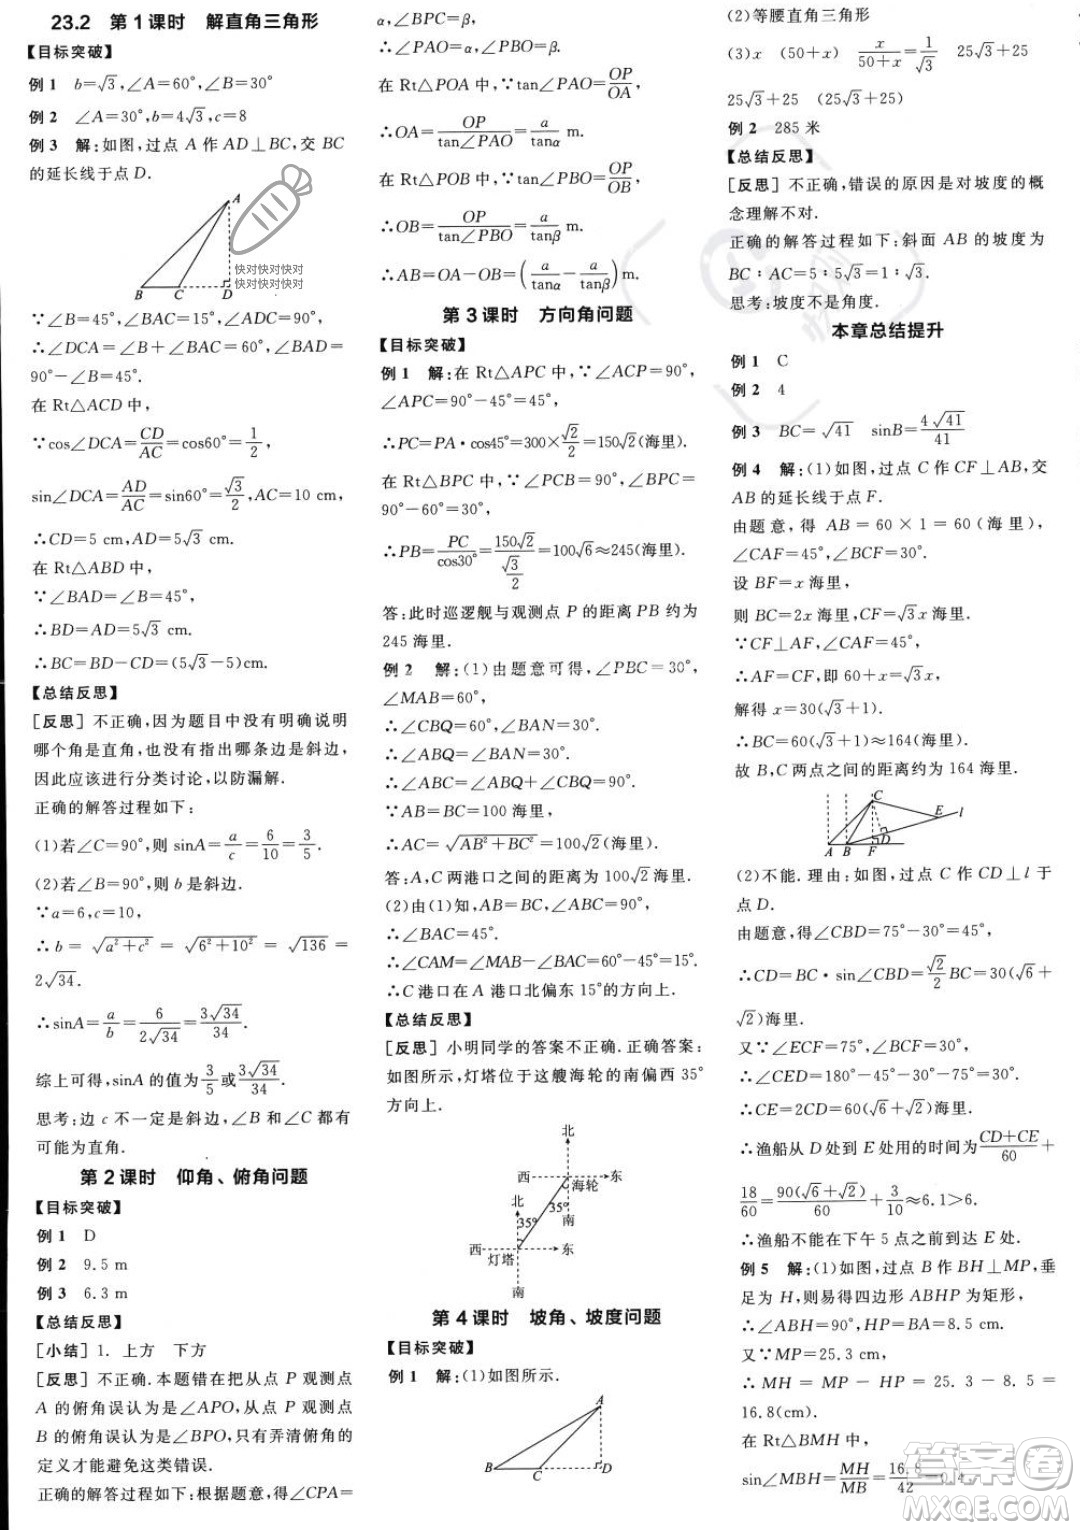 23.2 第1课时 解直角三角形
【目标突破】
例1 b=√3,∠A=60°,∠B=30°
例2 ∠A=30°,b=4√3,c=8
例3 解:如图,过点 A 作 AD⊥BC,交 BC
的延长线于点 D.
A
B C D
快对快对快对
快对快对快对
∵∠B=45°,∠BAC=15°,∠ADC=90°,
∴∠DCA=∠B+∠BAC=60°,∠BAD=
90°-∠B=45°.
在 Rt△ACD 中,
∵cos∠DCA=CD/AC=cos60°=1/2,
sin∠DCA=AD/AC=sin60°=√3/2,AC=10 cm,
∴CD=5 cm,AD=5√3 cm.
在 Rt△ABD 中,
∵∠BAD=∠B=45°,
∴BD=AD=5√3 cm.
∴BC=BD-CD=(5√3-5)cm.
【总结反思】
[反思] 不正确,因为题目中没有明确说明
哪个角是直角,也没有指出哪条边是斜边,
因此应该进行分类讨论,以防漏解.
正确的解答过程如下:
(1)若∠C=90°,则 sinA=a/c=6/10=3/5.
(2)若∠B=90°,则 b 是斜边.
∵a=6,c=10,
∴b=√(a²+c²)=√(6²+10²)=√136=
2√34.
∴sinA=a/b=6/(2√34)=3√34/34.
综上可得,sinA 的值为3/5或3√34/34.
思考:边 c 不一定是斜边,∠B 和∠C 都有
可能为直角.
第2课时 仰角、俯角问题
【目标突破】
例1 D
例2 9.5 m
例3 6.3 m
【总结反思】
[小结] 1. 上方 下方
[反思] 不正确.本题错在把从点 P 观测点
A 的俯角误认为是∠APO,从点 P 观测点
B 的俯角误认为是∠BPO,只有弄清俯角的
定义才能避免这类错误.
正确的解答过程如下:根据题意,得∠CPA=
α,∠BPC=β,
∴∠PAO=α,∠PBO=β.
在 Rt△POA 中,∵tan∠PAO=OP/OA,
∴OA=OP/tan∠PAO=a/tanα m.
在 Rt△POB 中,∵tan∠PBO=OP/OB,
∴OB=OP/tan∠PBO=a/tanβ m,
∴AB=OA-OB=(a/tanα-a/tanβ)m.
第3课时 方向角问题
【目标突破】
例1 解:在 Rt△APC 中,∵∠ACP=90°,
∠APC=90°-45°=45°,
∴PC=PA·cos45°=300×√2/2=150√2(海里).
在 Rt△BPC 中,∵∠BCP=90°,∠BPC=
90°-60°=30°,
∴PB=PC/cos30°=150√2/(√3/2)=100√6≈245(海里).
答:此时巡逻舰与观测点 P 的距离 PB 约为
245 海里.
例2 解:(1)由题意可得,∠PBC=30°,
∠MAB=60°,
∴∠CBQ=60°,∠BAN=30°,
∴∠ABQ=∠BAN=30°,
∴∠ABC=∠ABQ+∠CBQ=90°.
∵AB=BC=100 海里,
∴AC=√(AB²+BC²)=100√2(海里).
答:A,C 两港口之间的距离为100√2 海里.
(2)由(1)知,AB=BC,∠ABC=90°,
∴∠BAC=45°.
∴∠CAM=∠MAB-∠BAC=15°.
∴C 港口在 A 港口北偏东15°的方向上.
【总结反思】
[反思] 小明同学的答案不正确.正确答案:
如图所示,灯塔位于这艘海轮的南偏西35°
方向上.
北
西 东
海轮
北 35°
35° 南
西 东
灯塔
南
第4课时 坡角、坡度问题
【目标突破】
例1 解:(1)如图所示.
A
B C
(2)等腰直角三角形
(3)x (50+x) x/(50+x)=1/√3 25√3+25
25√3+25 (25√3+25)
例2 285米
【总结反思】
[反思] 不正确,错误的原因是对坡度的概
念理解不对.
正确的解答过程如下:斜面 AB 的坡度为
BC∶AC=5∶5√3=1∶√3.
思考:坡度不是角度.
本章总结提升
例1 C
例2 4
例3 BC=√41 sinB=4√41/41
例4 解:(1)如图,过点 C 作 CF⊥AB,交
AB 的延长线于点 F.
由题意,得 AB=60×1=60(海里),
∠CAF=45°,∠BCF=30°.
设 BF=x 海里,
则 BC=2x 海里,CF=√3x 海里.
∵CF⊥AF,∠CAF=45°,
∴AF=CF,即60+x=√3x,
解得 x=30(√3+1).
∴BC=60(√3+1)≈164(海里).
故 B,C 两点之间的距离约为 164 海里.
C E l
D
A B F
(2)不能.理由:如图,过点 C 作 CD⊥l 于
点 D.
由题意,得∠CBD=75°-30°=45°,
∴CD=BC·sin∠CBD=√2/2BC=30(√6+
√2)海里.
又∵∠ECF=75°,∠BCF=30°,
∴∠CED=180°-45°-30°-75°=30°,
∴CE=2CD=60(√6+√2)海里.
∴渔船从 D 处到 E 处用的时间为(CD+CE)/60+
18/60=90(√6+√2)/60+3/10≈6.1>6.
∴渔船不能在下午 5 点之前到达 E 处.
例5 解:(1)如图,过点 B 作 BH⊥MP,垂
足为 H,则易得四边形 ABHP 为矩形,
∴∠ABH=90°,HP=BA=8.5 cm.
又∵MP=25.3 cm,
∴MH=MP-HP=25.3-8.5=
16.8(cm).
在 Rt△BMH 中,
sin∠MBH=MH/MB=16.8/42=0.4,
答案圈
MXQE.COM